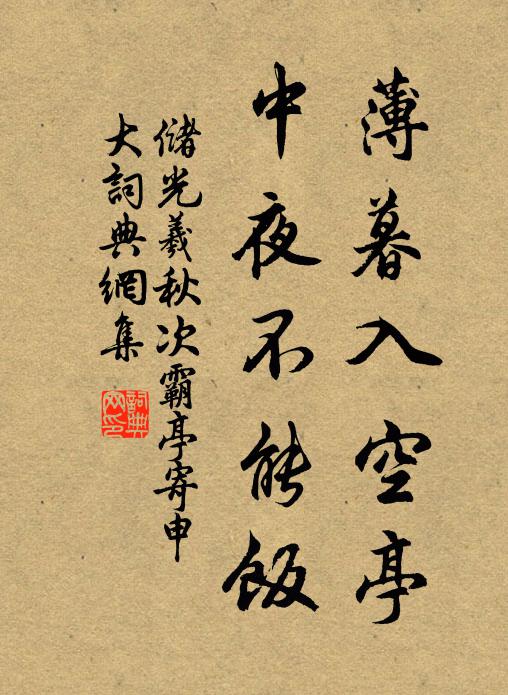 薄暮入空亭
中夜不能飯
儲光羲秋次霸亭寄申
大詞典網集
詞典網印